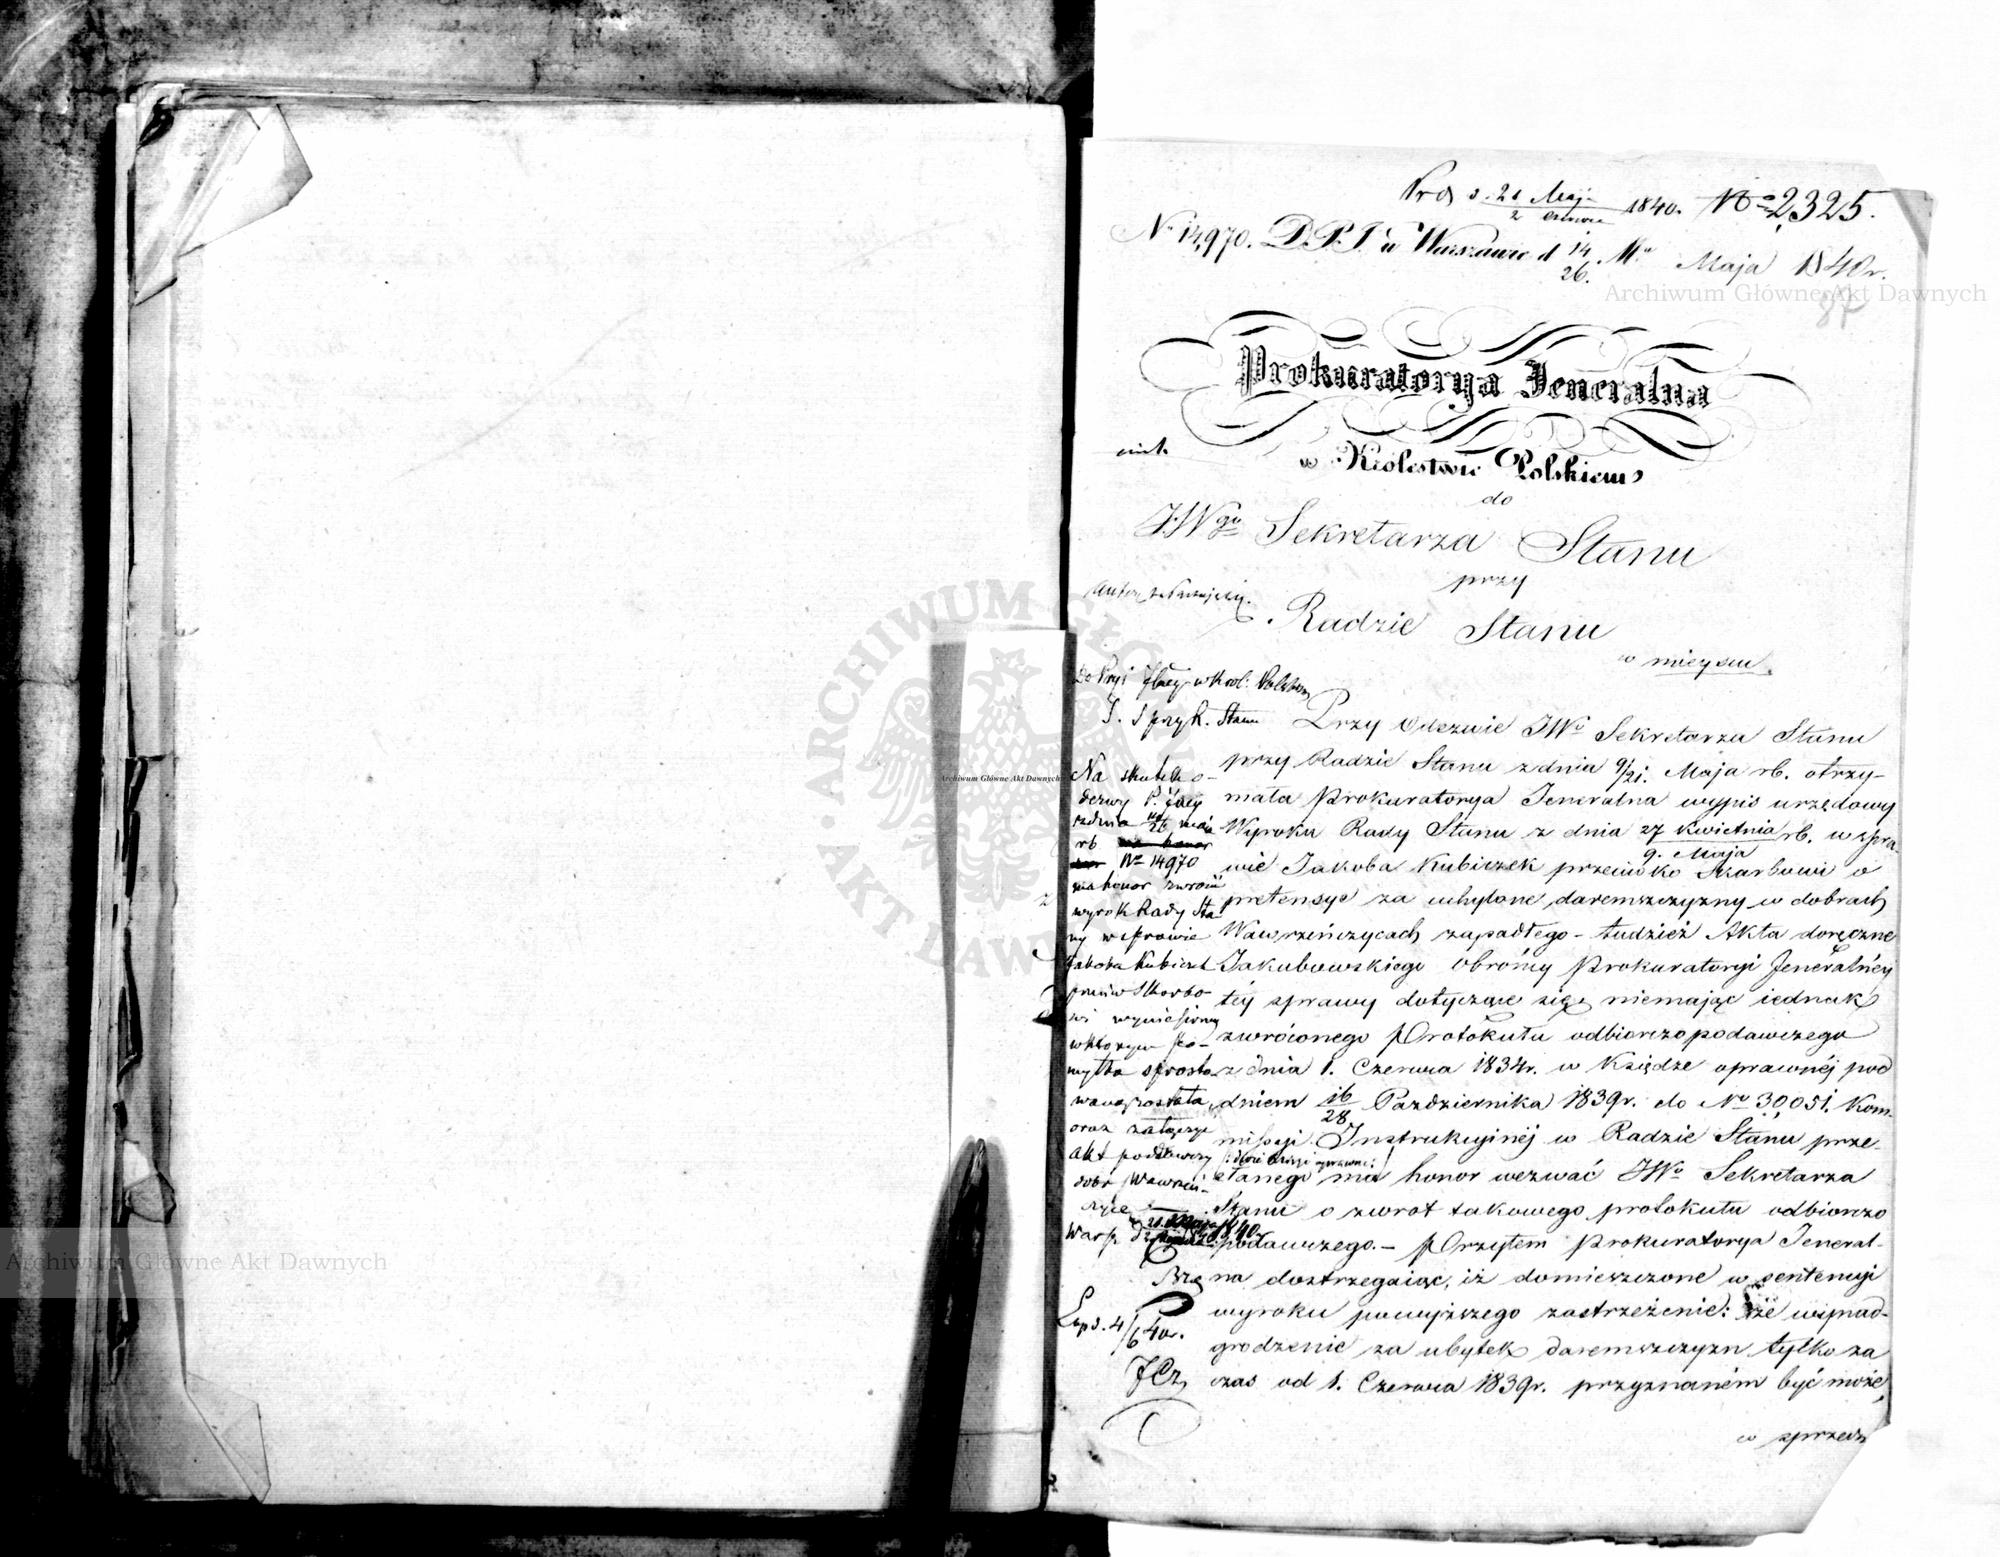 Prd d. 21 Maja / 2 Czerwca 1840. No 2,325.
No 14,970. D.P.I. w Warszawie d 14/26. Ma Maja 1840 r.
87
Prokuratorya Jeneralna
w Królestwie Polskiem
do
JWgo Sekretarza Stanu
przy
Radzie Stanu
w mieyscu.
Przy Odezwie JWo Sekretarza Stanu
przy Radzie Stanu z dnia 9/21. Maja rb. otrzy-
mała Prokuratorya Jeneralna wypis urzędowy
Wyroku Rady Stanu z dnia 27 Kwietnia / 9. Maja rb. w spra-
wie Jakoba Kubiczek przeciwko Skarbowi o
pretensye za uchylone daremszczyzny w dobrach
Wawrzeńczycach zapadłego - tudzież Akta doręczne
Jakubowskiego Obrońcy Prokuratoryi Jeneralnéy
téy sprawy dotyczące się, niemając iednak
zwróconego Protokułu odbiorczo podawczego
z dnia 1. Czerwca 1834r. w Księdze oprawnéj pod
dniem 16/28 Października 1839r. do No 30,051. Kom-
missyi Instrukcyinéj w Radzie Stanu prze-
słanego /: dwie księgi oprawne :/ ma honor wezwać JWo Sekretarza
Stanu o zwrot takowego protokułu odbiorczo
podawczego. - Przytem Prokuratorya Jeneral-
na dostrzegaiąc, iż domieszczone w sentencyi
wyroku powyższego zastrzeżenie: że wynad-
grodzenie za ubytek daremszczyzn tylko za
czas od 1. Czerwca 1839r. przyznaném być może,
w sprzecz
Do Pryi Jlney w Krol: Polskiem
S. S przy R. Stanu
Na skutek o-
dezwy P. Jney
z dnia 14/26 maja
rb
No 14970
ma honor zwrócić
wyrok Rady Sta
nu w sprawie
Jakoba Kubiczek
przeciw Skarbo-
wi wyniesioney
w którym po-
myłka sprosto-
waną została,
oraz załączyć
akt podawczy
dobr Wawrzeń-
czyce
Warsz. d 1840.
Exp d. 4/6 40r.
Archiwum Główne Akt Dawnych
Archiwum Główne Akt Dawnych
Archiwum Główne Akt Dawnych
ARCHIWUM GŁÓWNE AKT DAWNYCH